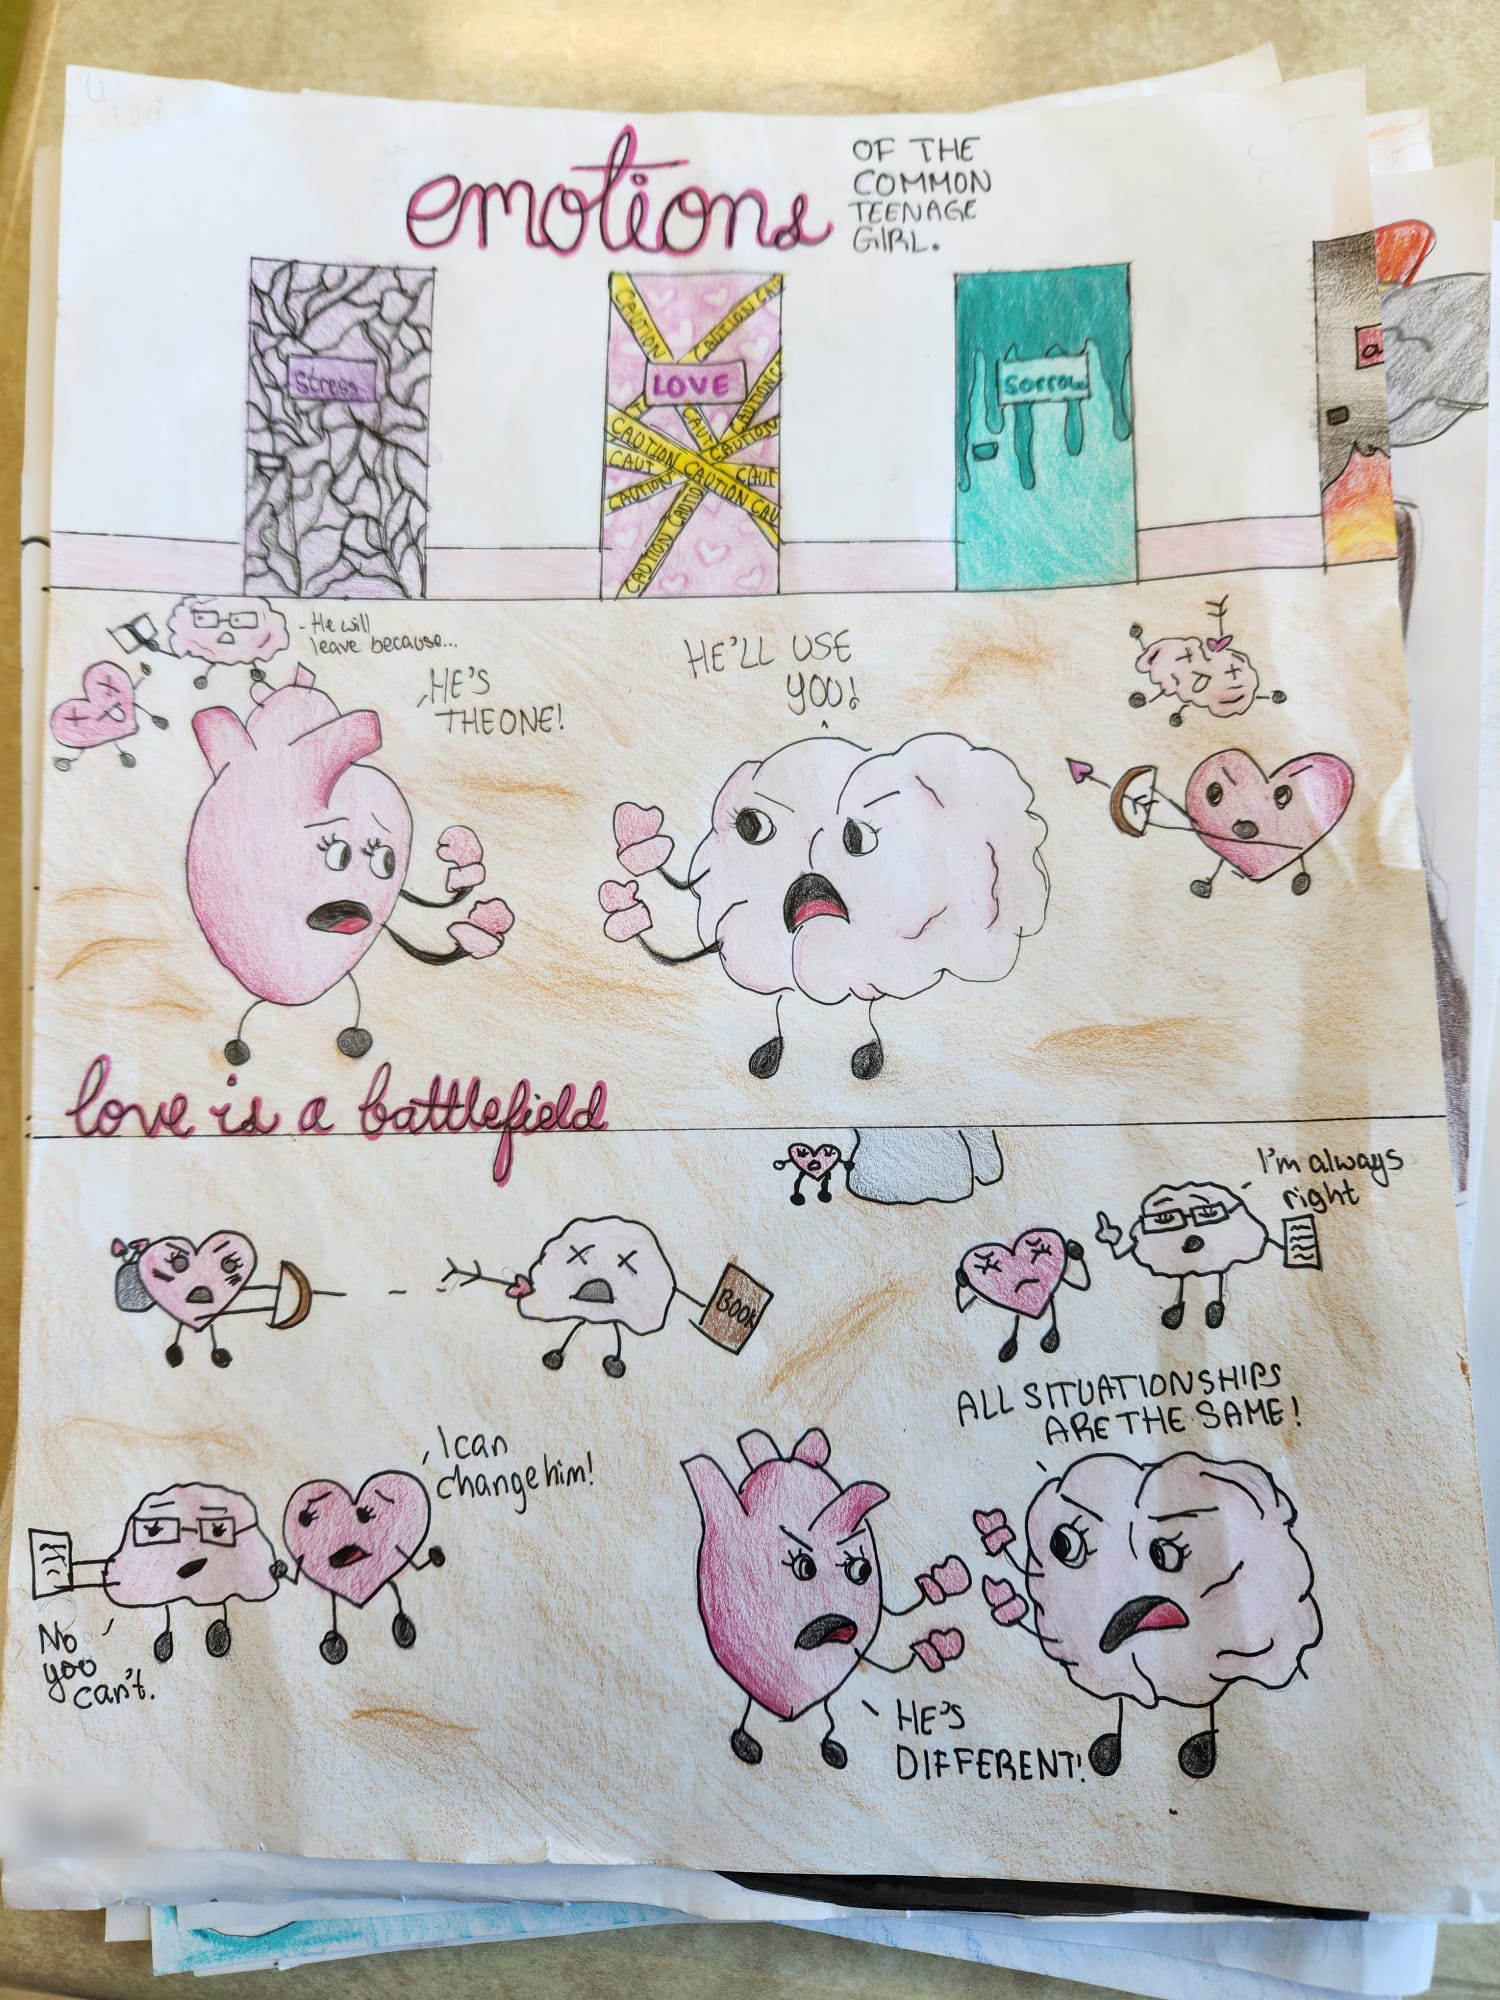 emotions
OF THE
COMMON
TEENAGE
GIRL.
Stress
LOVE
Sorrow
a
CAUTION
CAUTION CAU
CAUTION C
CAUT
CAUTION
CAUTION CAUTION CAU
CAUT
CAUT
CAUTION
CAUTION CAUTION
- He will
leave because...
HE'S
THE ONE!
HE'LL USE
YOU!
love is a battlefield
I'm always
right
BOOK
ALL SITUATIONSHIPS
ARE THE SAME!
I can
change him!
No
you
can't.
HE'S
DIFFERENT!